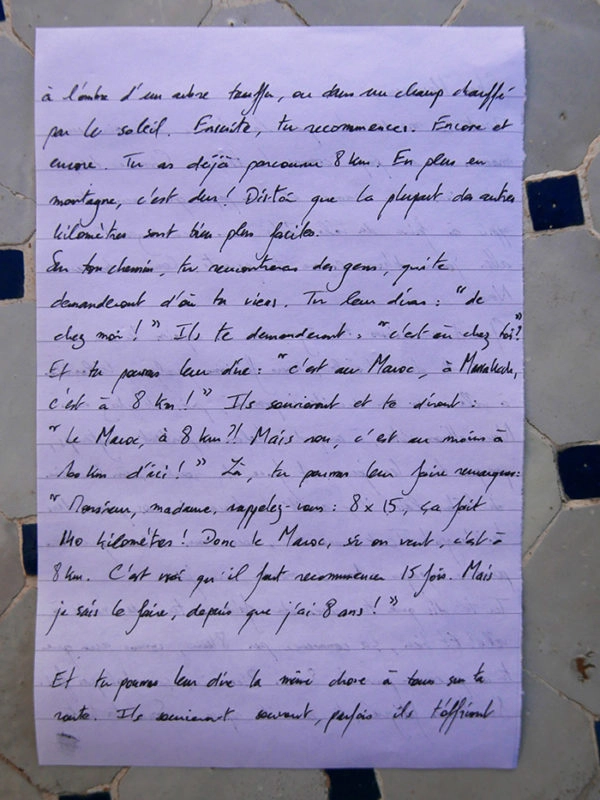 à l'ombre d'un arbre touffu, ou dans un champ chauffé
par le soleil. Ensuite, tu recommences. Encore et
encore. Tu as déjà parcouru 8 km. En plus en
montagne, c'est dur ! Dis-toi que la plupart des autres
kilomètres sont bien plus faciles.
Sur ton chemin, tu rencontreras des gens, qui te
demanderont d'où tu viens. Tu leur diras : "de
chez moi ! " Ils te demanderont : "c'est où chez toi ?
Et tu pourras leur dire : "c'est au Maroc, à Marrakech,
c'est à 8 km ! " Ils souriront et te diront :
" Le Maroc, à 8 km ?! Mais non, c'est au moins à
100 km d'ici ! " Là, tu pourras leur faire remarquer :
" Monsieur, madame, rappelez-vous : 8 x 15, ça fait
140 kilomètres ! Donc le Maroc, si on veut, c'est à
8 km. C'est vrai qu'il faut recommencer 15 fois. Mais
je sais le faire, depuis que j'ai 8 ans ! "
Et tu pourras leur dire la même chose à tous sur ta
route. Ils souriront souvent, parfois ils t'offriront